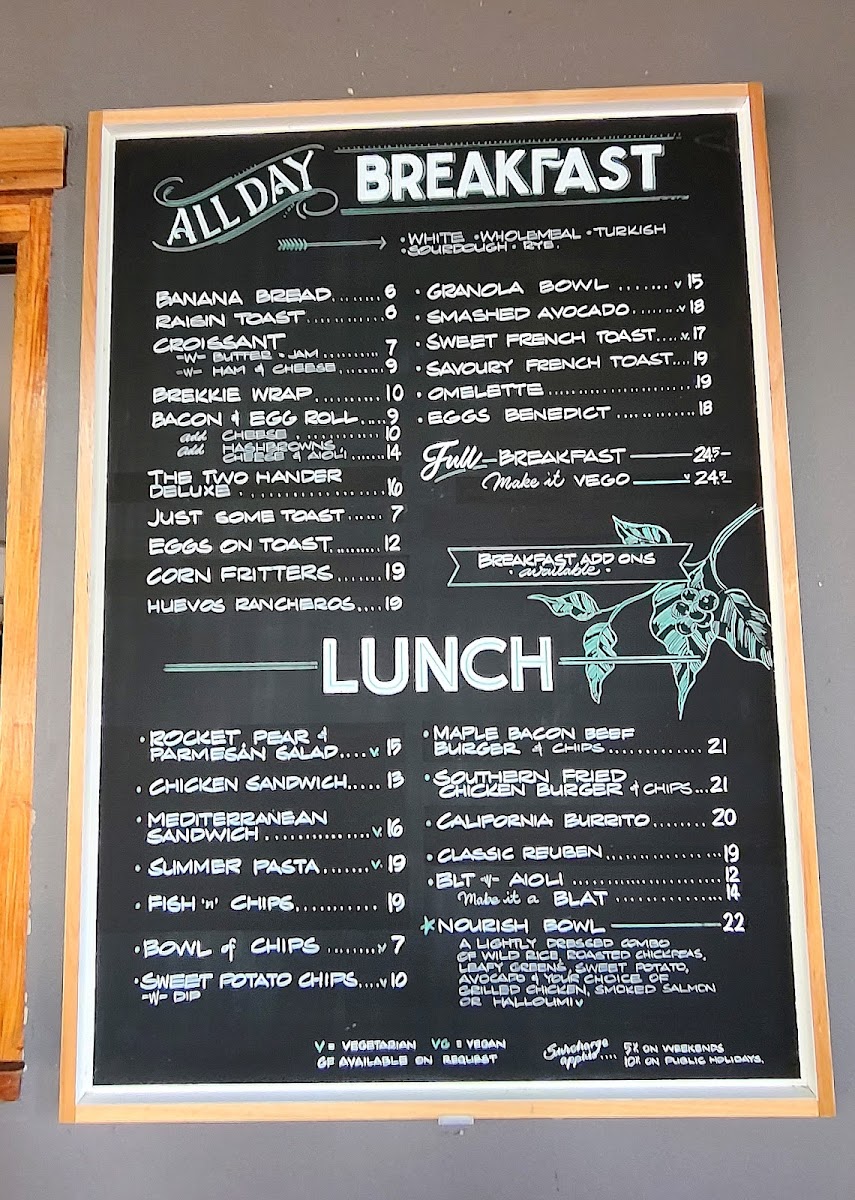 ALL DAY BREAKFAST
• WHITE • WHOLEMEAL • TURKISH
• SOURDOUGH • RYE •
BANANA BREAD........6
RAISIN TOAST...........6
CROISSANT
-W- BUTTER & JAM..........7
-W- HAM & CHEESE........9
BREKKIE WRAP.........10
BACON & EGG ROLL....9
add CHEESE.............10
add HASHBROWNS
CHEESE & AIOLI.....14
THE TWO HANDER
DELUXE..................16
JUST SOME TOAST......7
EGGS ON TOAST.........12
CORN FRITTERS.......19
HUEVOS RANCHEROS....19
• GRANOLA BOWL.......V 15
• SMASHED AVOCADO.......V 18
• SWEET FRENCH TOAST....V 17
• SAVOURY FRENCH TOAST...19
• OMELETTE....................19
• EGGS BENEDICT...........18
Full BREAKFAST 24.5
Make it VEGO V 24.5
BREAKFAST ADD ONS
• available •
LUNCH
• ROCKET, PEAR &
PARMESAN SALAD....V 15
• CHICKEN SANDWICH.....13
• MEDITERRANEAN
SANDWICH..............V 16
• SUMMER PASTA.......V 19
• FISH 'n' CHIPS...........19
• BOWL of CHIPS........V 7
• SWEET POTATO CHIPS....V 10
-W- DIP
• MAPLE BACON BEEF
BURGER & CHIPS.............21
• SOUTHERN FRIED
CHICKEN BURGER & CHIPS...21
• CALIFORNIA BURRITO.......20
• CLASSIC REUBEN...............19
• BLT -W- AIOLI....................12
Make it a BLAT...............14
NOURISH BOWL 22
A LIGHTLY DRESSED COMBO
OF WILD RICE, ROASTED CHICKPEAS,
LEAFY GREENS, SWEET POTATO,
AVOCADO & YOUR CHOICE OF
GRILLED CHICKEN, SMOKED SALMON
OR HALLOUMI V
V = VEGETARIAN VG = VEGAN
GF AVAILABLE ON REQUEST
Surcharge
applies.... 5% ON WEEKENDS
10% ON PUBLIC HOLIDAYS.